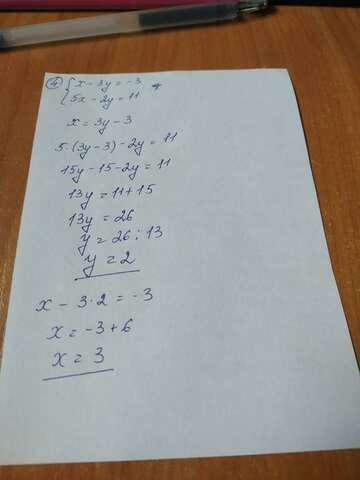 ④ { x - 3y = -3
5x - 2y = 11
x = 3y - 3
5·(3y - 3) - 2y = 11
15y - 15 - 2y = 11
13y = 11 + 15
13y = 26
y = 26 : 13
y = 2
x - 3·2 = -3
x = -3 + 6
x = 3